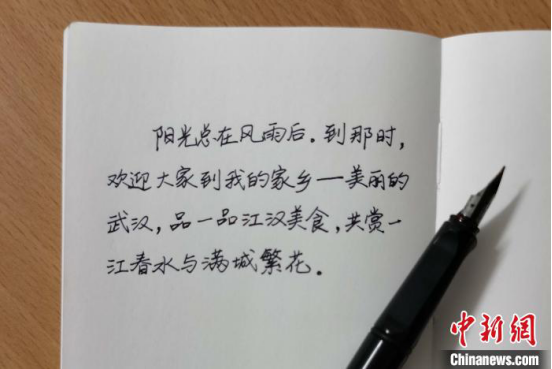 阳光总在风雨后.到那时,
欢迎大家到我的家乡一美丽的
武汉,品一品江汉美食,共赏一
江春水与满城繁花.
中新網
Chinanews.com